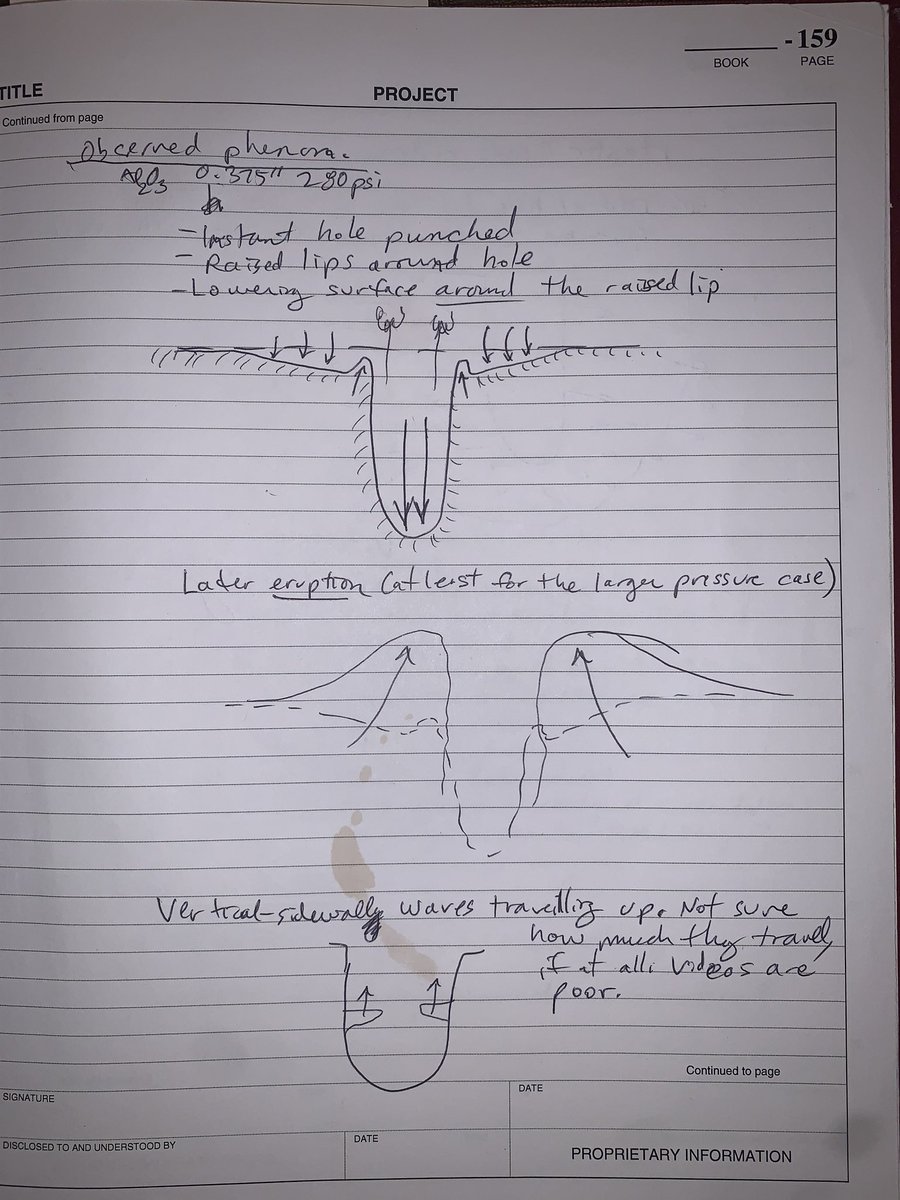 -159
BOOK PAGE
TITLE PROJECT
Continued from page
Observed phenom.
Al2O3 0.375" 280psi
- Instant hole punched
- Raised lips around hole
- Lowering surface around the raised lip
Later eruption (at leist for the larger pressure case)
Vertical-sidewall waves travelling up. Not sure
how much they travel,
if at all. Videos are
poor.
Continued to page
SIGNATURE
DATE
DISCLOSED TO AND UNDERSTOOD BY
DATE
PROPRIETARY INFORMATION